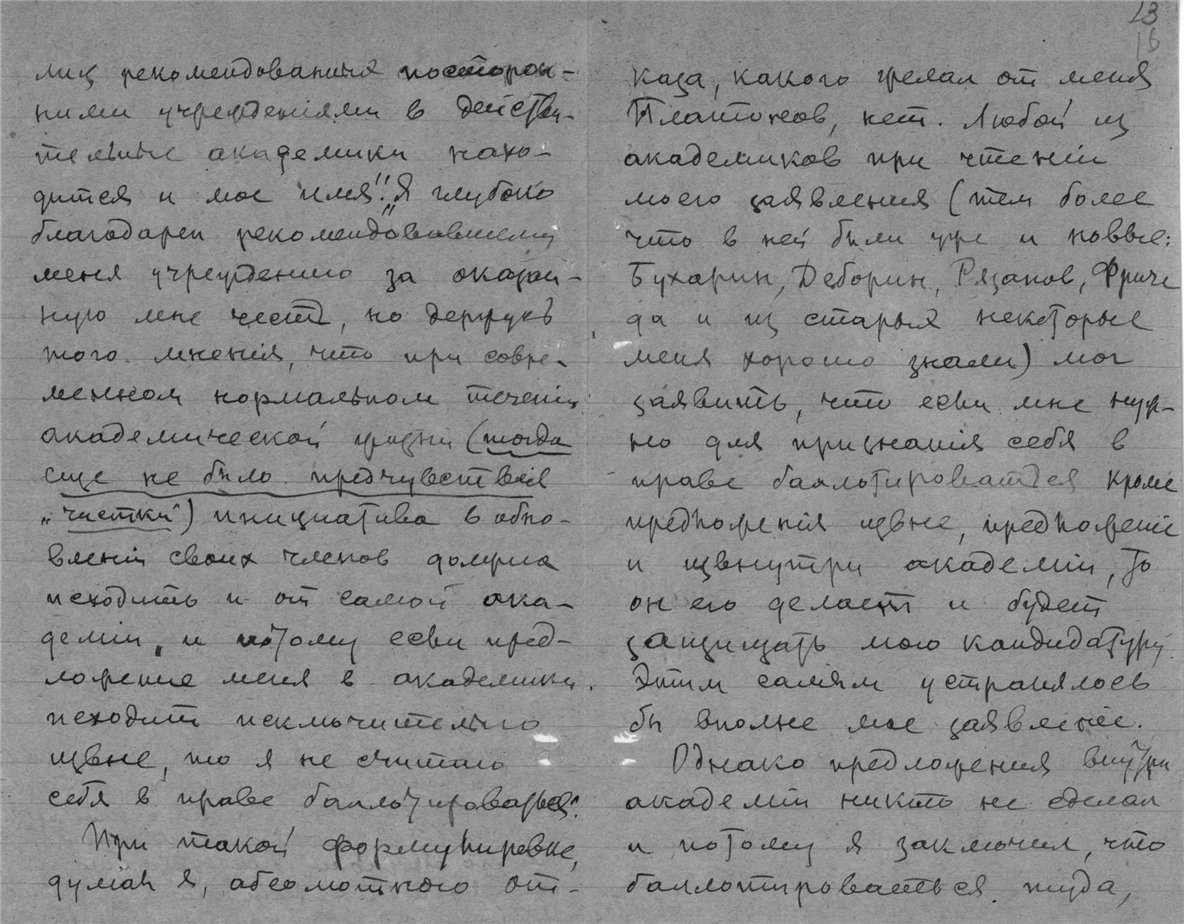 13
16
лиц рекомендованныя посторон-
ними учрежденіями в действи-
тельные академики нахо-
дится и мое имя". "Я глубоко
благодарен рекомендовавшему
меня учреждению за оказан-
ную мне честь, но держусь
того мненія, что при совре-
менном нормальном теченіи
академической жизни (тогда
еще не было предчувствія
"чистки") инициатива в обно-
вленіи своих членов должна
исходить и от самой ака-
деміи, и потому если пред-
ложение меня в академики
исходит исключительно
извне, то я не считаю
себя в праве баллотироваться".
При такой формулировке,
думал я, абсолютного от-
каза, какого желал от меня
Платонов, нет. Любой из
академиков при чтеніи
моего заявления (тем более
что в ней были уже и новые:
Бухарин, Деборин, Рязанов, Фриче
да и из старыя некоторые
меня хорошо знали) мог
заявить, что если мне нуж-
но для признанія себя в
праве баллотироваться кроме
предложенія извне, предложеніе
и извнутри академіи, то
он его делает и будет
защищать мою кандидатуру.
Этим самым устранялось
бы вполне мое заявленіе.
Однако предложения внутри
академіи никто не сделал
и потому я заключил, что
баллотироваться туда,